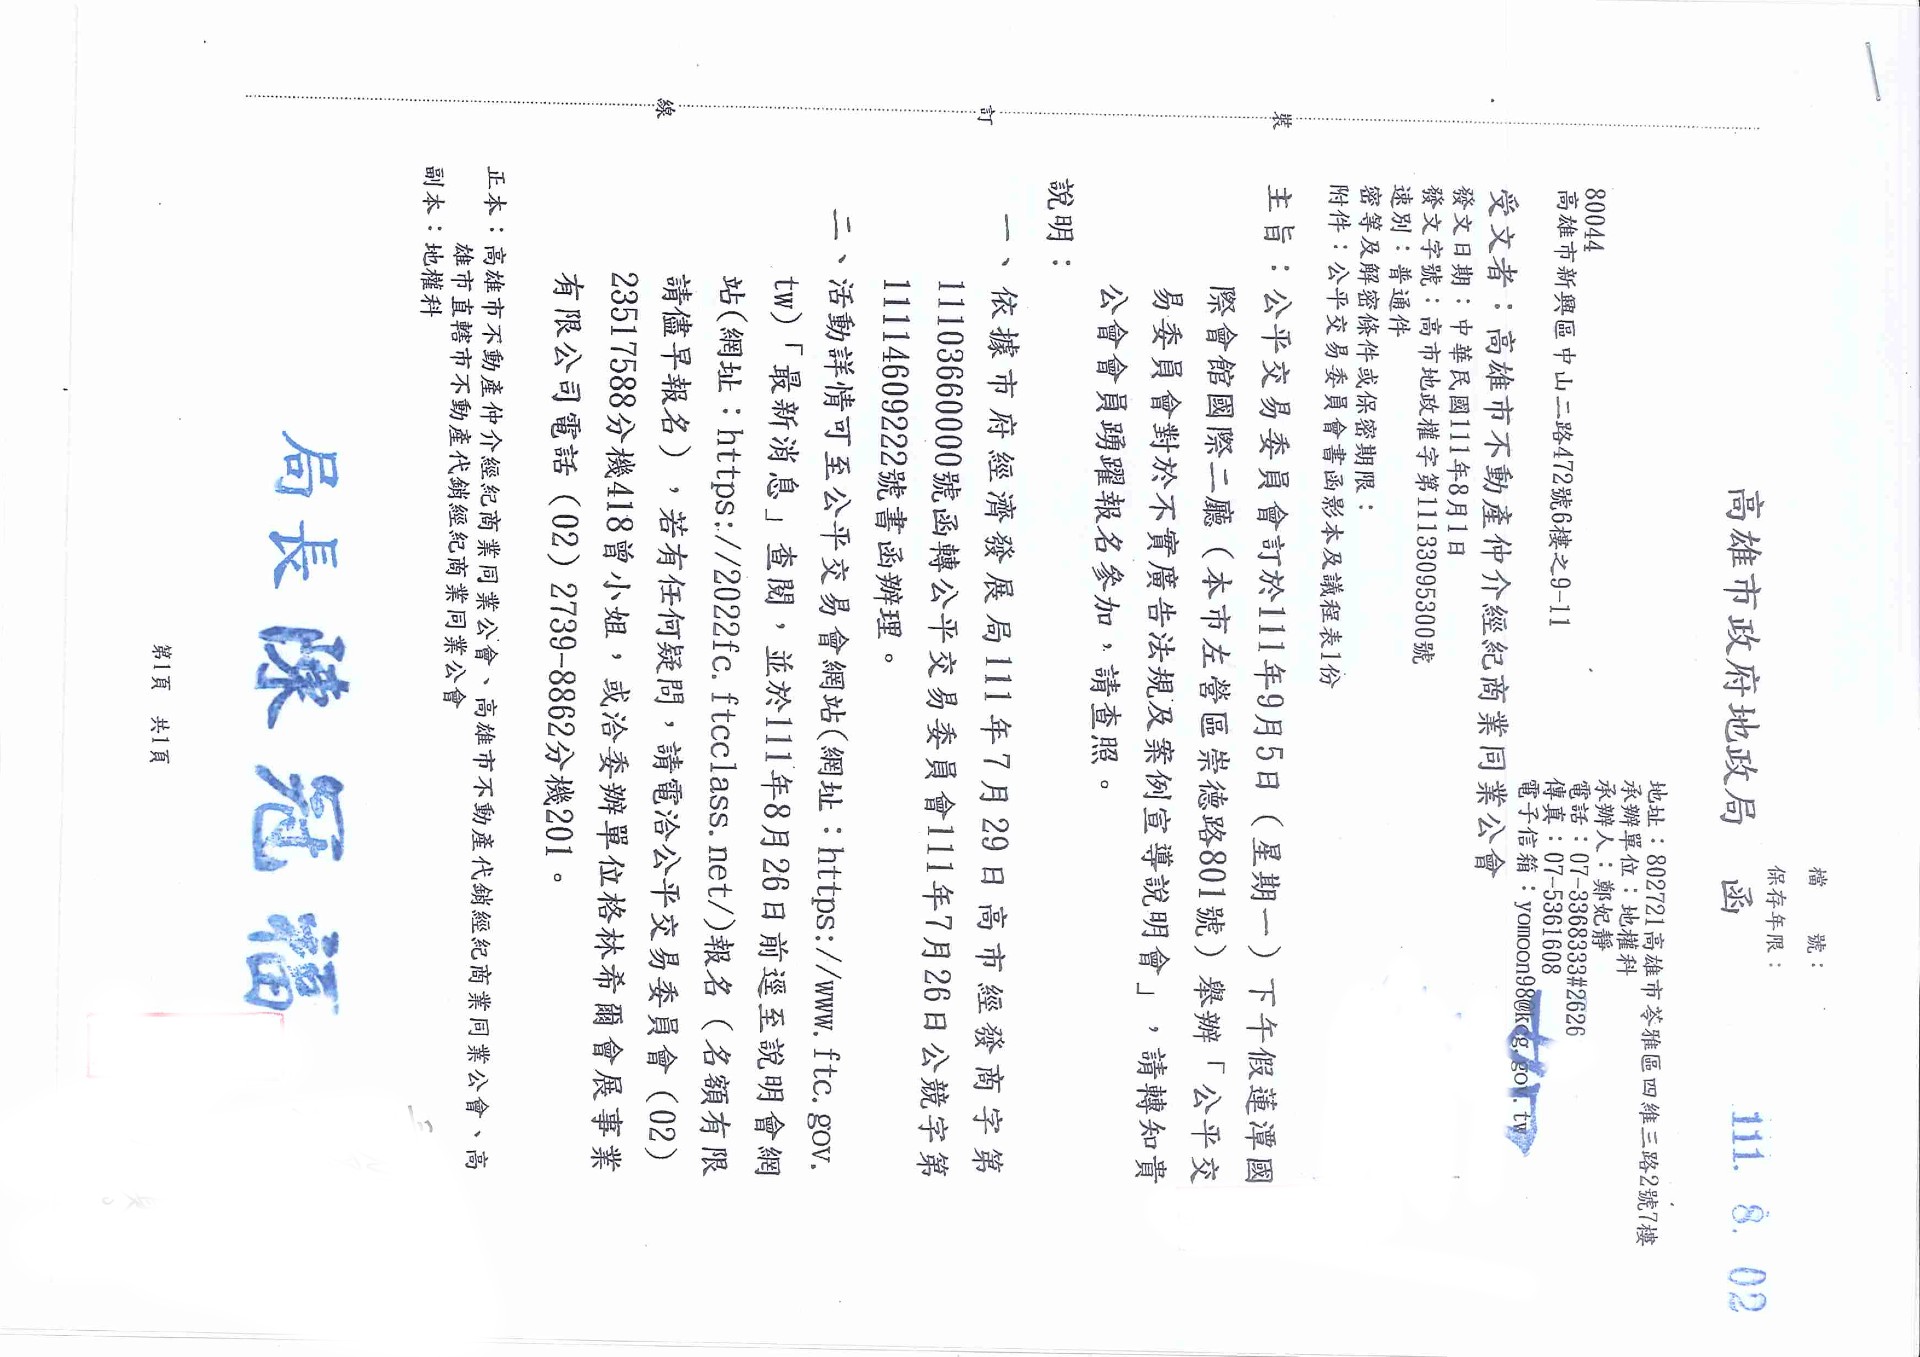 檔　　號：
保存年限：
高雄市政府地政局　函
111. 8. 02
地址：802721高雄市苓雅區四維三路2號7樓
承辦單位：地權科
承辦人：鄭妃靜
電話：07-3368333#2626
傳真：07-5361608
電子信箱：yomoon98@kcg.gov.tw
80044
高雄市新興區中山二路472號6樓之9-11
受文者：高雄市不動產仲介經紀商業同業公會
發文日期：中華民國111年8月1日
發文字號：高市地政權字第11133095300號
速別：普通件
密等及解密條件或保密期限：
附件：公平交易委員會書函影本及議程表1份
主旨：公平交易委員會訂於111年9月5日（星期一）下午假蓮潭國
際會館國際二廳（本市左營區崇德路801號）舉辦「公平交
易委員會對於不實廣告法規及案例宣導說明會」，請轉知貴
公會會員踴躍報名參加，請查照。
說明：
一、依據市府經濟發展局111年7月29日高市經發商字第
11103660000號函轉公平交易委員會111年7月26日公競字第
1111460922​2號書函辦理。
二、活動詳情可至公平交易會網站(網址：https://www.ftc.gov.
tw)「最新消息」查閱，並於111年8月26日前逕至說明會網
站(網址：https://2022fc.ftcclass.net/)報名（名額有限
請儘早報名），若有任何疑問，請電洽公平交易委員會（02）
23517588分機418曾小姐，或洽委辦單位格林希爾會展事業
有限公司電話（02）2739-8862分機201。
正本：高雄市不動產仲介經紀商業同業公會、高雄市不動產代銷經紀商業同業公會、高
雄市直轄市不動產代銷經紀商業同業公會
副本：地權科
局長 陳冠福
第1頁　共1頁
裝
訂
線